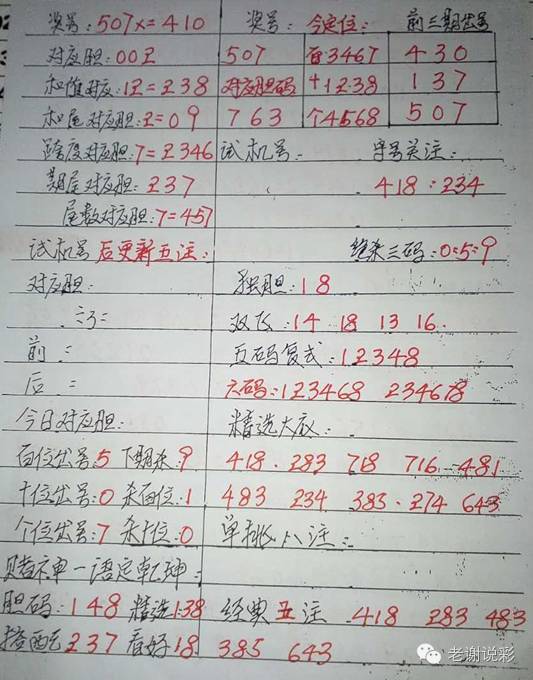 奖号:507x=410 奖号: 今定位: 前三期出号
对应胆:00Z 507 百3467 430
和值对应:1Z=Z38 对应胆码 十1238 137
和尾对应胆:Z=09 763 个4568 507
跨度对应胆:7=Z346 试机号: 字号关注:
期尾对应胆:Z37 418:234
尾数对应胆:7=457
试机号后更新五注: 绝杀三码:0:5:9
对应胆: 独胆:18
双飞:14 18 13 16
前: 五码复式:12348
后: 六码:123468 234678
今日对应胆: 精选大底:
百位出号:5 下期杀:9 418. 283 718 716 481
十位出号:0 杀百位:1 483 234 383. 274 643
个位出号:7 杀十位:0 单挑八注:
赌神一语定乾坤:
胆码:148 精选138 经典五注 418 283 483
搭配237 看好18 385 643
老谢说彩